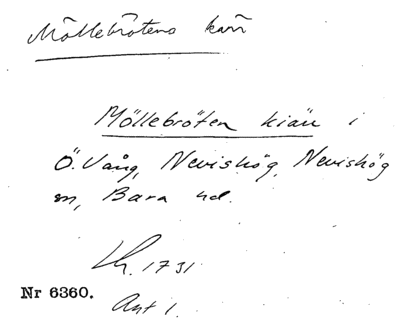 Möllebrötens kärr
Möllebröten kiäu i
Ö. Vång, Nevishög, Nevishög
sn, Bara hd.
Lh. 1731
Nr 6360.
Akt 1.